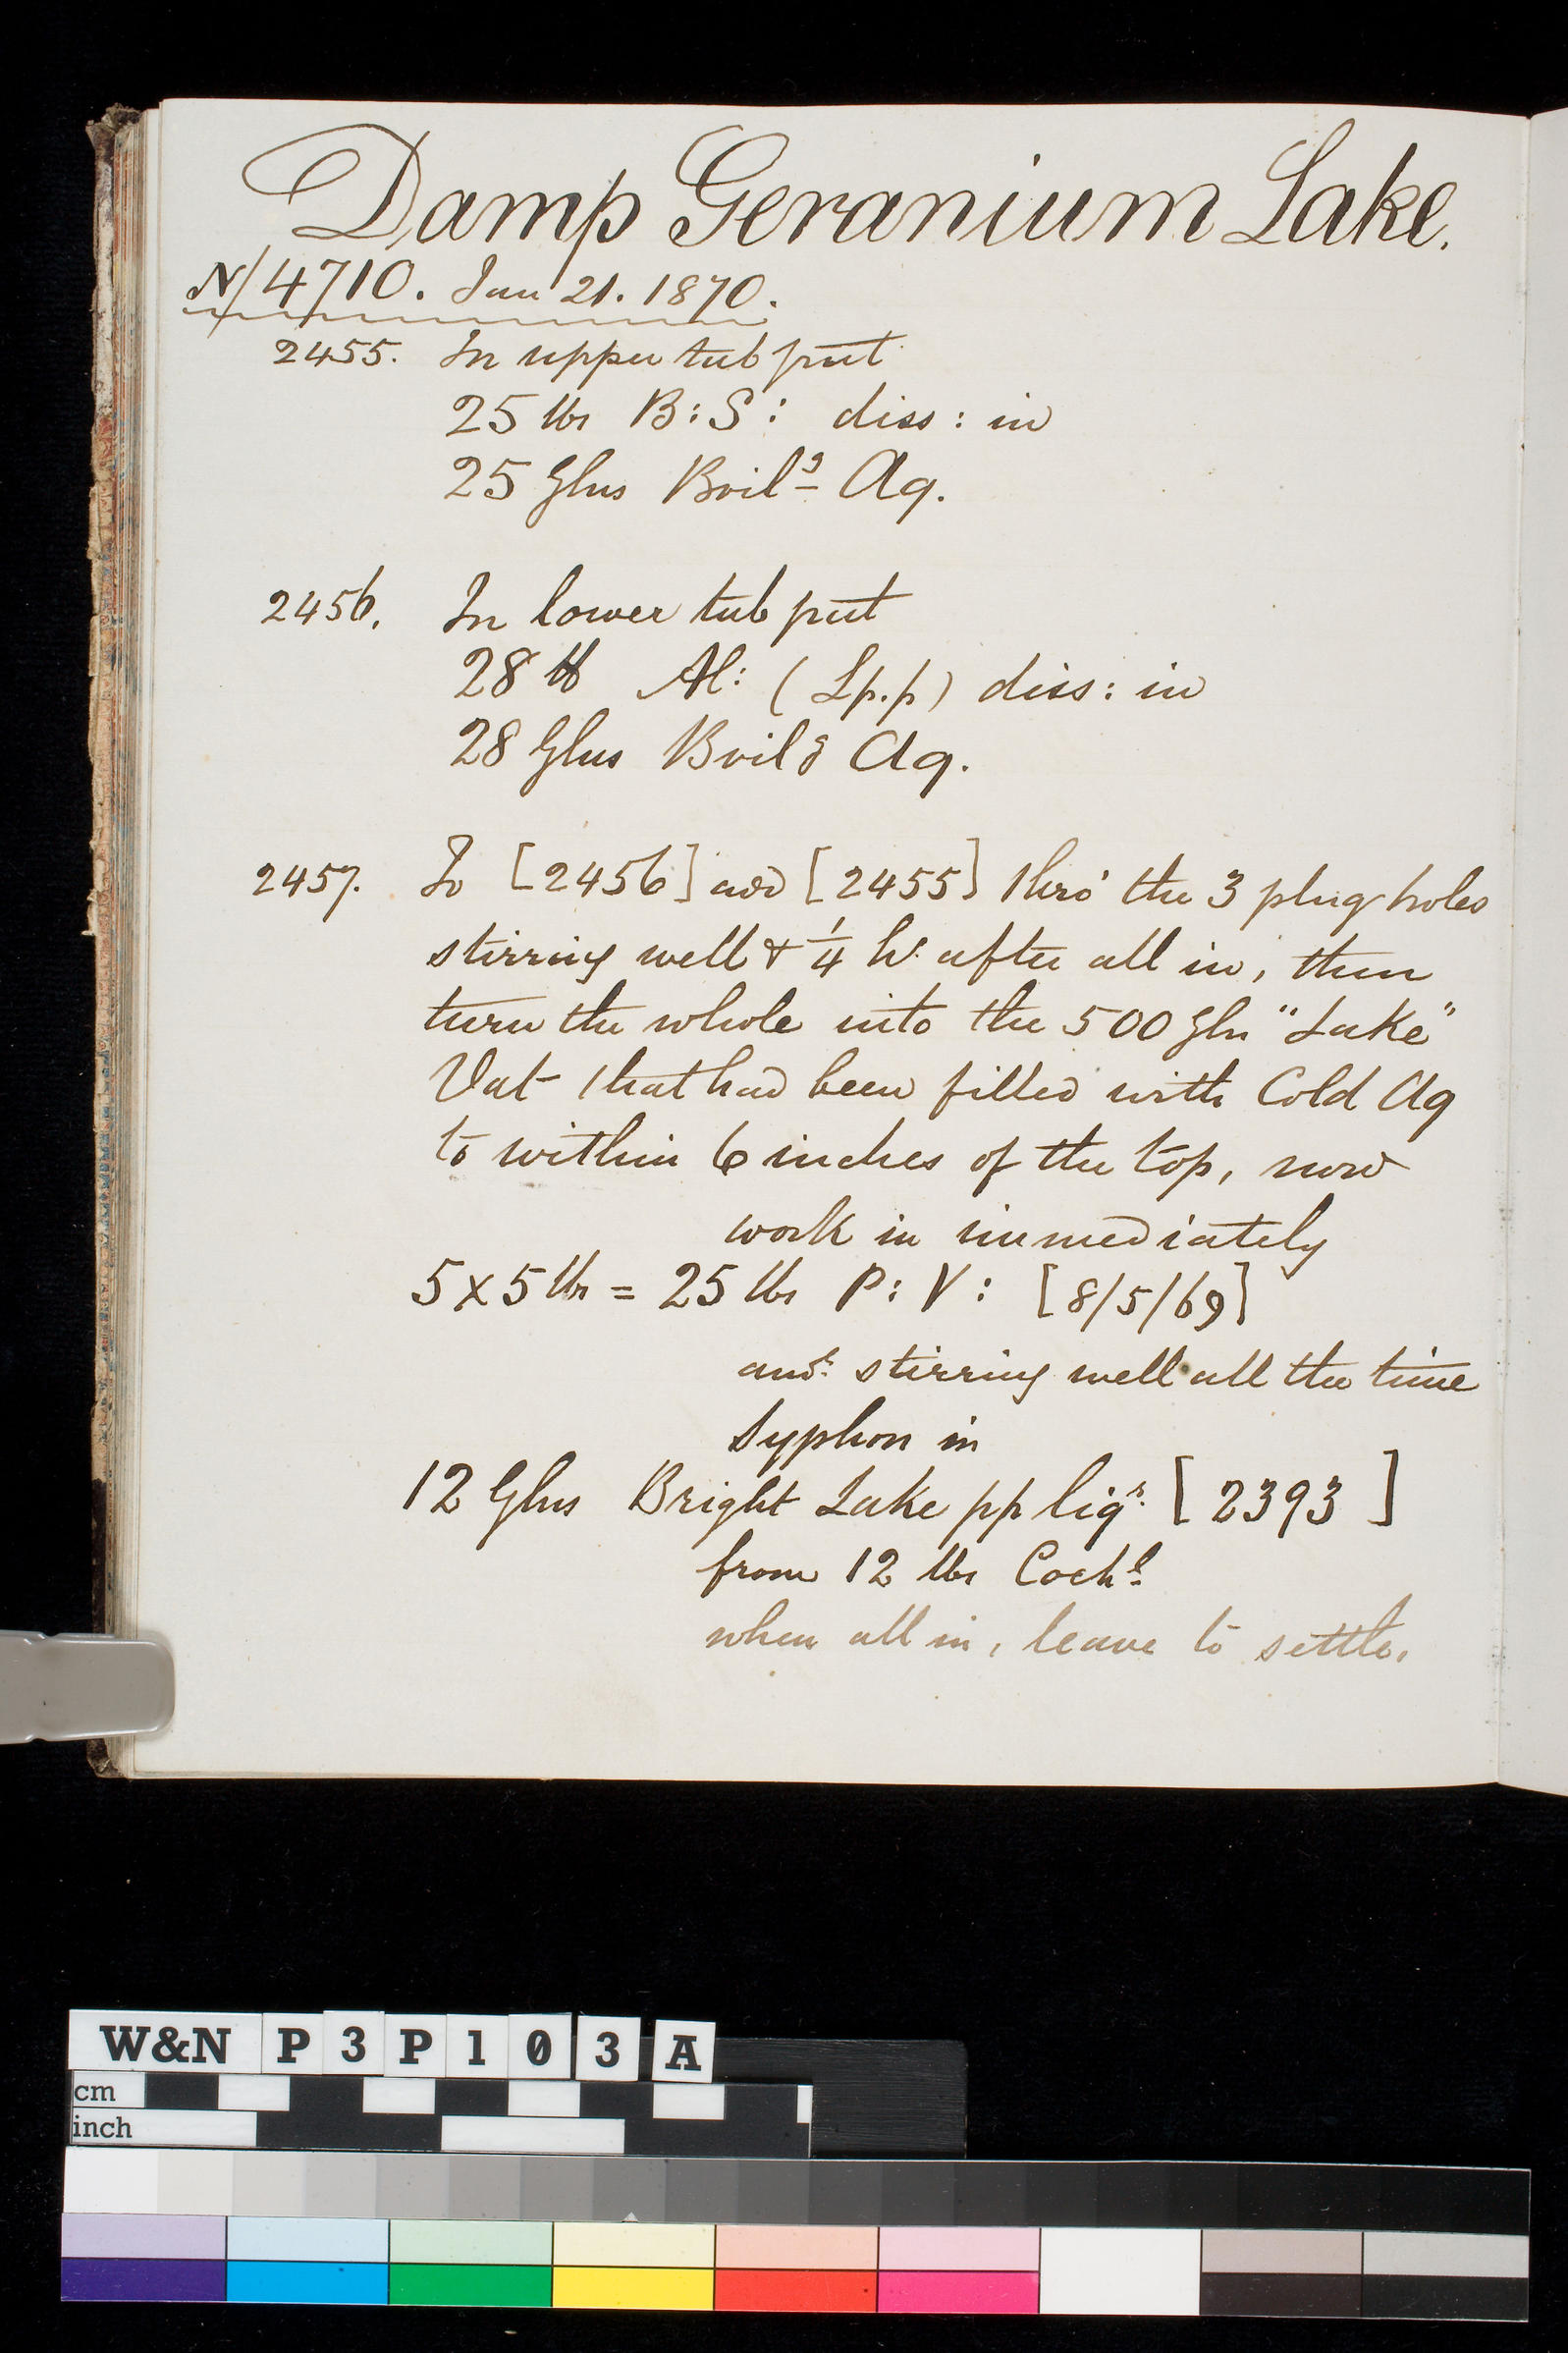 Damp Geranium Lake.
N/4710. Jan 21. 1870.
2455. In upper tub put
25 lbs B:S: diss: in
25 Glns Boilg Aq.
2456. In lower tub put
28 lb Al: (Lp.p) diss: in
28 Glns Boilg Aq.
2457. To [2456] add [2455] thro' the 3 plug holes
stirring well & 1/4 hr after all in, then
turn the whole into the 500 Gln "Lake"
Vat that had been filled with Cold Aq
to within 6 inches of the top, now
work in immediately
5x5 lbs = 25 lbs P:V: [8/5/69]
stirring well all the time
Syphon in
12 Glns Bright Lake pp liqr. [2393]
from 12 lbs Cochl
when all in, leave to settle.
W&N P3P103A
cm
inch